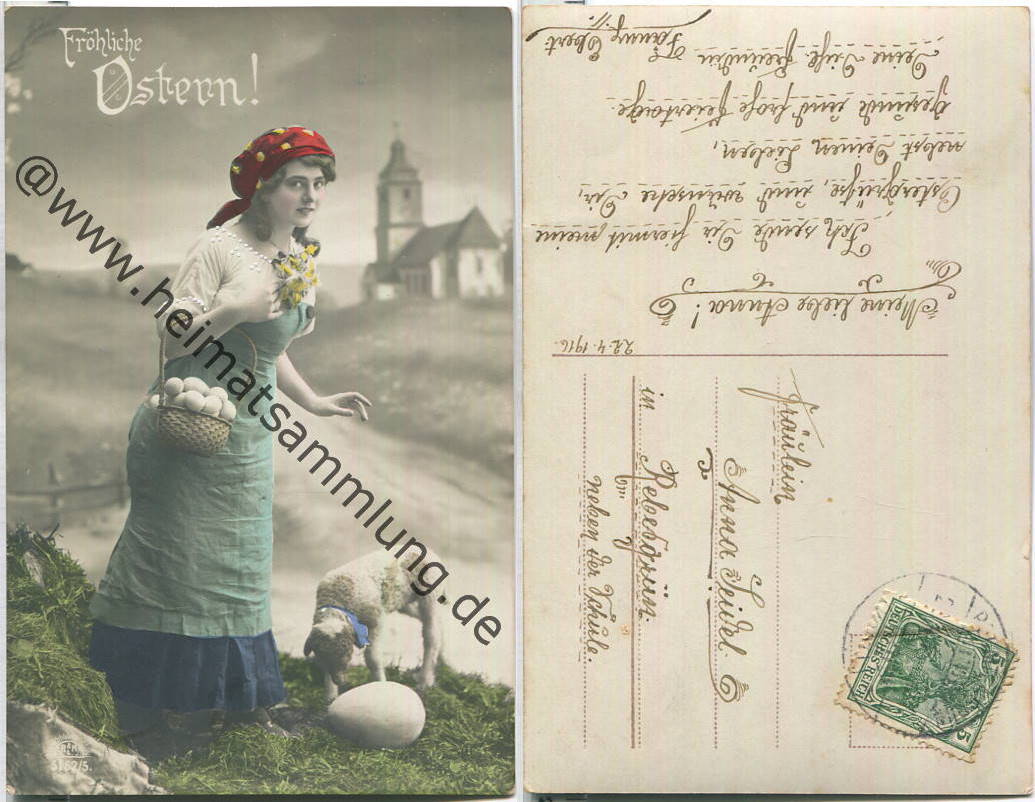 Fröhliche
Ostern!
@www.heimatsammlung.de
5162/5.
22.4.1916.
Meine liebe Anna!
Ich sende Dir hiermit meine
Ostergrüße, und wünsche Dir,
nebst Deinen Lieben,
gesunde und frohe Feiertage.
Deine Freundin
Fanny Ebert.
Fräulein
Anna Seidel.
in Rebesgrün.
neben der Schule.
DEUTSCHES REICH
5
5